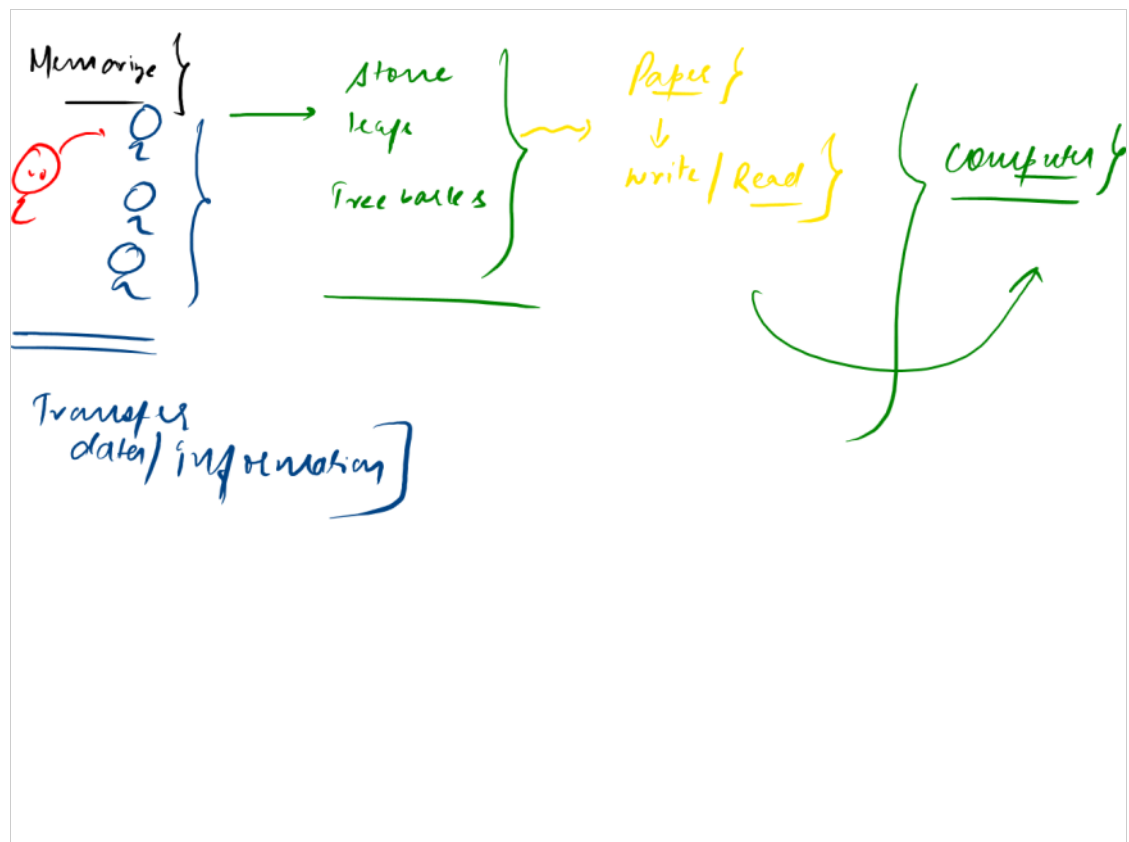 Memorize
stone
leafs
Tree barks
Paper
write/Read
computer
Transfer
data/information